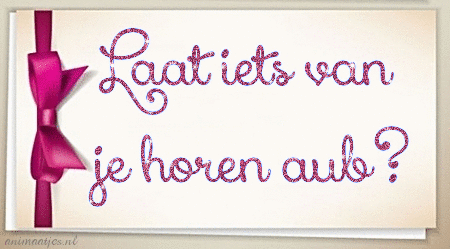 Laat iets van
je horen aub?
animaatjes.nl